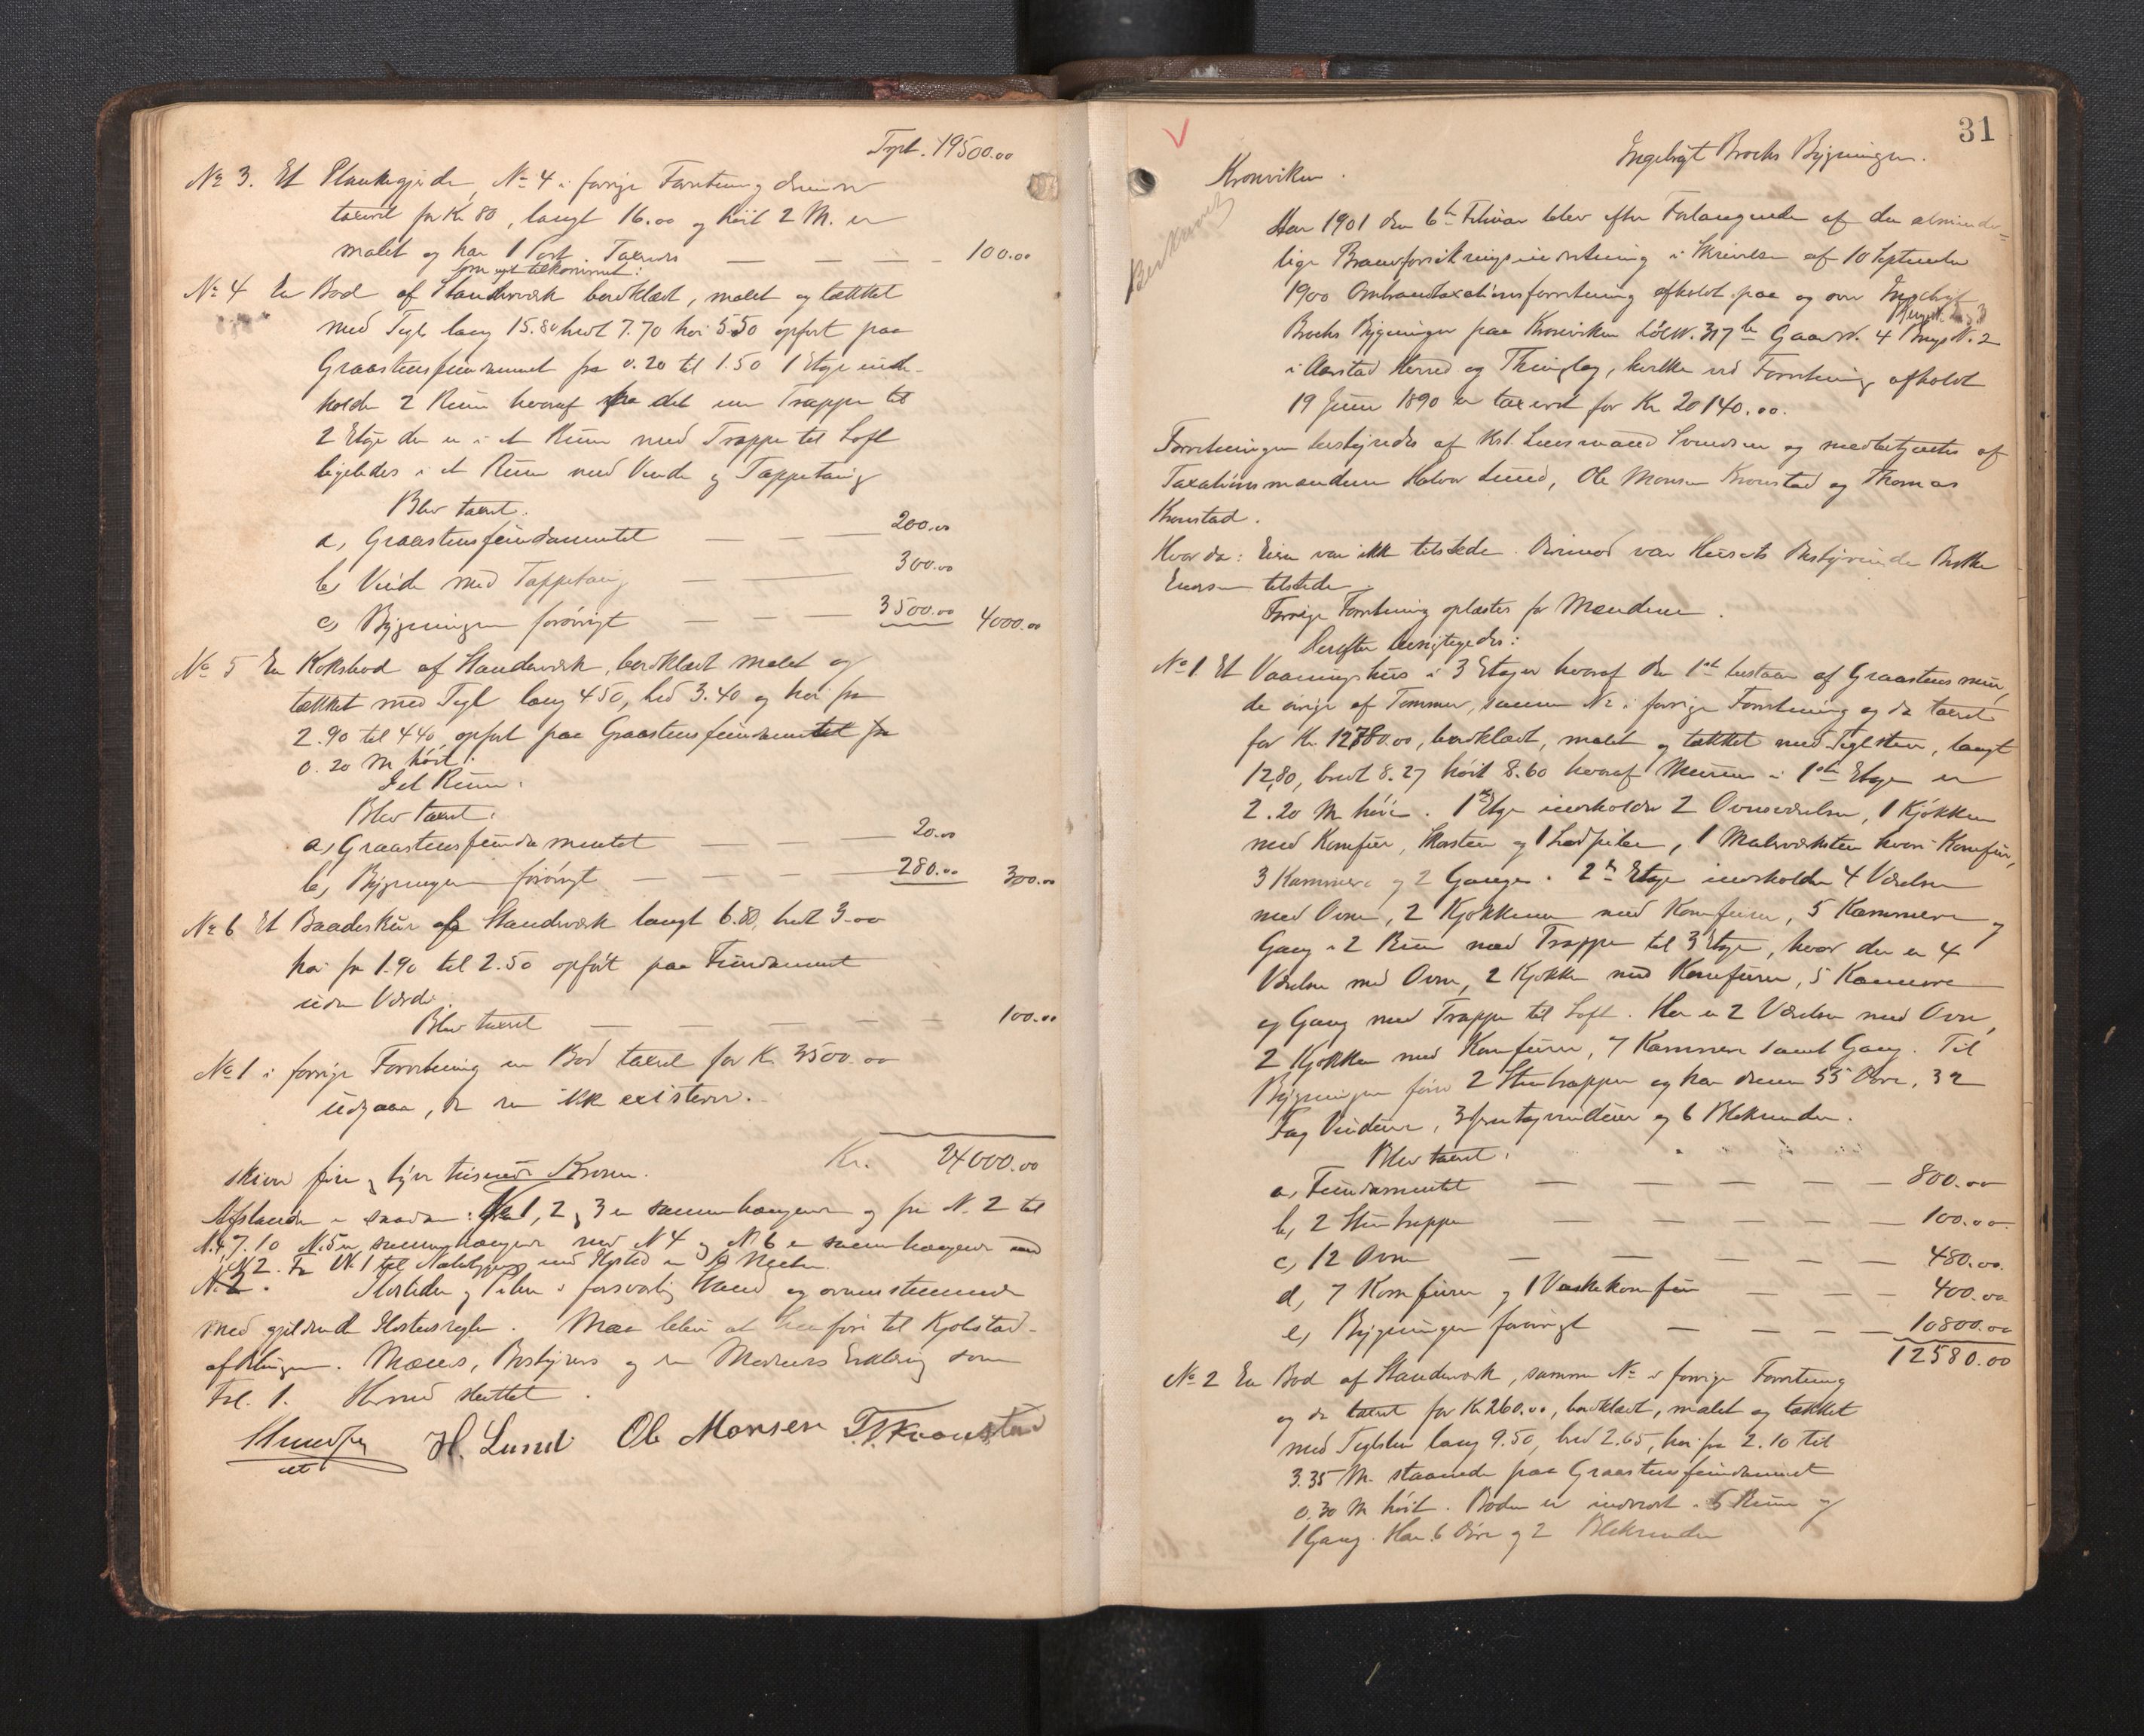 Tpt. 19500.00
No 3. Et Plankegjerde, No 4 i forrige Forretning
taxeret for Kr 80, langt 16.00 og høit 2 M. er
malet og har 1 Port. Taxeres — — — — 100.00
som nyt tilkommet:
No 4 En Bod af Standværk bordklædt, malet og tækket
med Tegl lang 15.80 bred 7.70 høi 5.50 opført paa
Graastensfundament fra 0.20 til 1.50 1 Etage inde-
holder 2 Rum hvoraf fra det ene Trappe til
2 Etage der er i et Rum med Trappe til Loft
ligeledes i et Rum med Vinde og Tappetaug
Blev taxeret.
a, Graastensfundamentet — — — 200.00
b, Vinde med Tappetaug — — 300.00
c, Bygningen forøvrigt — — — 3500.00 4000.00
No 5 En Koksbod af Standværk, bordklædt malet og
tækket med Tegl lang 4.50, bred 3.40 og høi fra
2.90 til 4.40 opført paa Graastensfundamentet fra
0.20 M høit.
Et Rum.
Blev taxeret.
a, Graastensfundamentet — — — 20.00
b, Bygningen forøvrigt — — — — 280.00 300.00
No 6 Et Baadeskur af Standværk langt 6.80, bredt 3.00
høi fra 1.90 til 2.50 opført paa Fundament
uden Værdi.
Blev taxeret — — — — 100.00
No 1 i forrige Forretning en Bod taxeret for Kr 3500.00
udgaar, da den ikke existerer.
Kr. 24000.00
skriver fire og tyve tusend Kroner.
Afstanden er saadan: No 1, 2 og 3 er sammenhængende og fra N. 2 til
N. 4, 7.10 N. 5 er sammenhængende med N 4 og N. 6 er sammenhængende med
N. 2. Fra N. 1 til med Ildsted er
N. 2. Ildsteder og Piber i forsvarlig Stand og overensstemmende
med gjældende . Maa blive at henføre til Kjøbstad-
afdelingen. Mænds, Bestyrers og Erklæring som
Fol. 1. Hermed sluttet.
H. Lund Ole Monsen T. T. Kronstad
31
Kronviken. Engebrigt Brochs Bygninger.
Beskrevet
Aar 1901 den 6te Februar blev efter Forlangende af den alminde-
lige Brandforsikringsindretning i Skrivelse af 10 September
1900 Ombrandtaxationsforretning afholdt paa og over Engebrigt
Brochs Bygninger paa Kronviken LøbeN. 317b GaardN. 4 BrugsN. 2
i Aarstad Herred og Thinglag, hvilke ved Forretning afholdt
19 Juni 1890 er taxeret for Kr 20140.00.
Forretningen bestyredes af Kst. Lensmand Svendsen og medbetjentes af
Taxationsmændene Halvor Lund, Ole Monsen Kronstad og Thomas
Kronstad.
Hvor da: Eier var ikke tilstede. Derimod var Husets Bestyrerinde
tilstede.
Forrige Forretning oplæstes for Mændene.
Derefter besigtigedes:
No 1 Et Vaaningshus i 3 Etager hvoraf den 1ste bestaar af Graastensmur,
de øvrige af Tømmer, samme No i forrige Forretning og da taxeret
for Kr. 12780.00, bordklædt, malet og tækket med Teglsten, langt
12,80, bredt 8.27 høit 8.60 hvoraf Muren i 1ste Etage er
2.20 M høi. 1ste Etage indeholder 2 Ovnsværelser, 1 Kjøkken
med Komfur, Skorsten og 1 Ledpibe, 1 Malerværksted hvori Komfur,
3 Kammere og 2 Gange. 2den Etage indeholder 4 Værelser
med Ovne, 2 Kjøkkener med Komfurer, 5 Kammere og
Gang i 2 Rum med Trappe til 3 Etage, hvor der er 4
Værelser med Ovne, 2 Kjøkken med Komfurer, 5 Kammere
og Gang med Trappe til Loft. Her er 2 Værelser med Ovne,
2 Kjøkken med Komfurer, 7 Kammere samt Gang. Til
Bygningen fører 2 Stentrapper og har denne 55 Døre, 32
Fag Vinduer, 3 vinduer og 6 Blikrender.
Blev taxeret:
a, Fundamentet — — — — — 800.00
b, 2 Stentrapper — — — — — 100.00
c, 12 Ovne — — — — — 480.00
d, 7 Komfurer og 1 Vaskekomfur — — — 400.00
e, Bygningen forøvrigt — — — — 10800.00
12580.00
No 2 En Bod af Standværk, samme No i forrige Forretning
og da taxeret for Kr 260.00, bordklædt, malet og tækket
med Teglsten lang 9.50, bred 2.65, høi fra 2.10 til
3.35 M. staaende paa Graastensfundament
0.30 M høit. Boden er inddelt i 5 Rum og
1 Gang. Har 6 Døre og 2 Blikrender